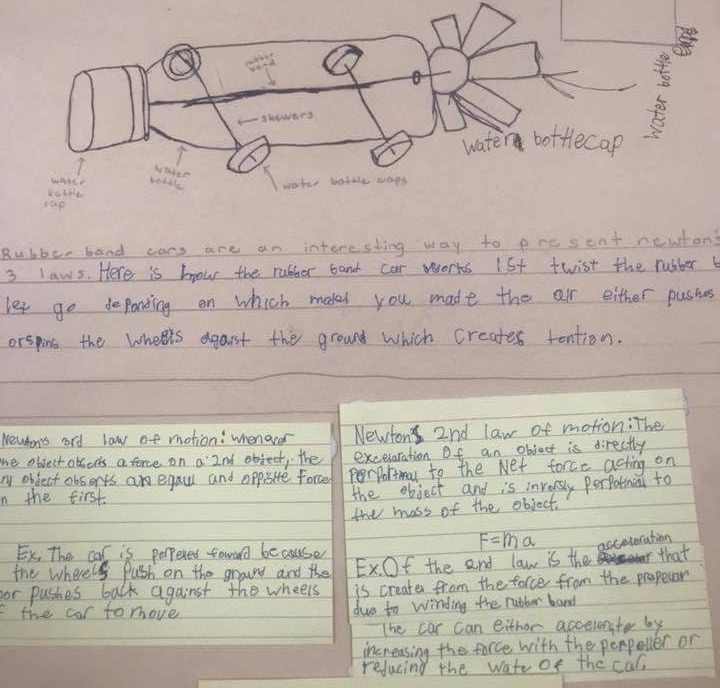 rubber
band
skewers
water
bottle
cap
water
bottle
water bottle caps
water bottlecap
water bottle
Rubber band cars are an interesting way to present newton's
3 laws. Here is how the rubber band car works 1St twist the rusber b
let go deponding on which model you made the air either pushes
orspins the wheels agaist the ground which creates tention.
Newton's 3rd law of motion: whenever
one object obserds a force on a 2nd object, the
ry object obserts an eqaul and oppisite force
n the first.
Ex. The car is porpered foward because
the wheels push on the ground and the
oor pushes back against the wheels
the car to move
Newtons 2nd law of motion: The
exceloration of an object is directly
to the Net force acting on
the object and is inversly perpotnial to
the mass of the object.
F=ma
acceloration
Ex. Of the 2nd law is the that
is creates from the force from the propelar
due to winding the rubber band
The car can eithor accelerate by
increasing the force with the perpeller or
reducing the wate of the car.